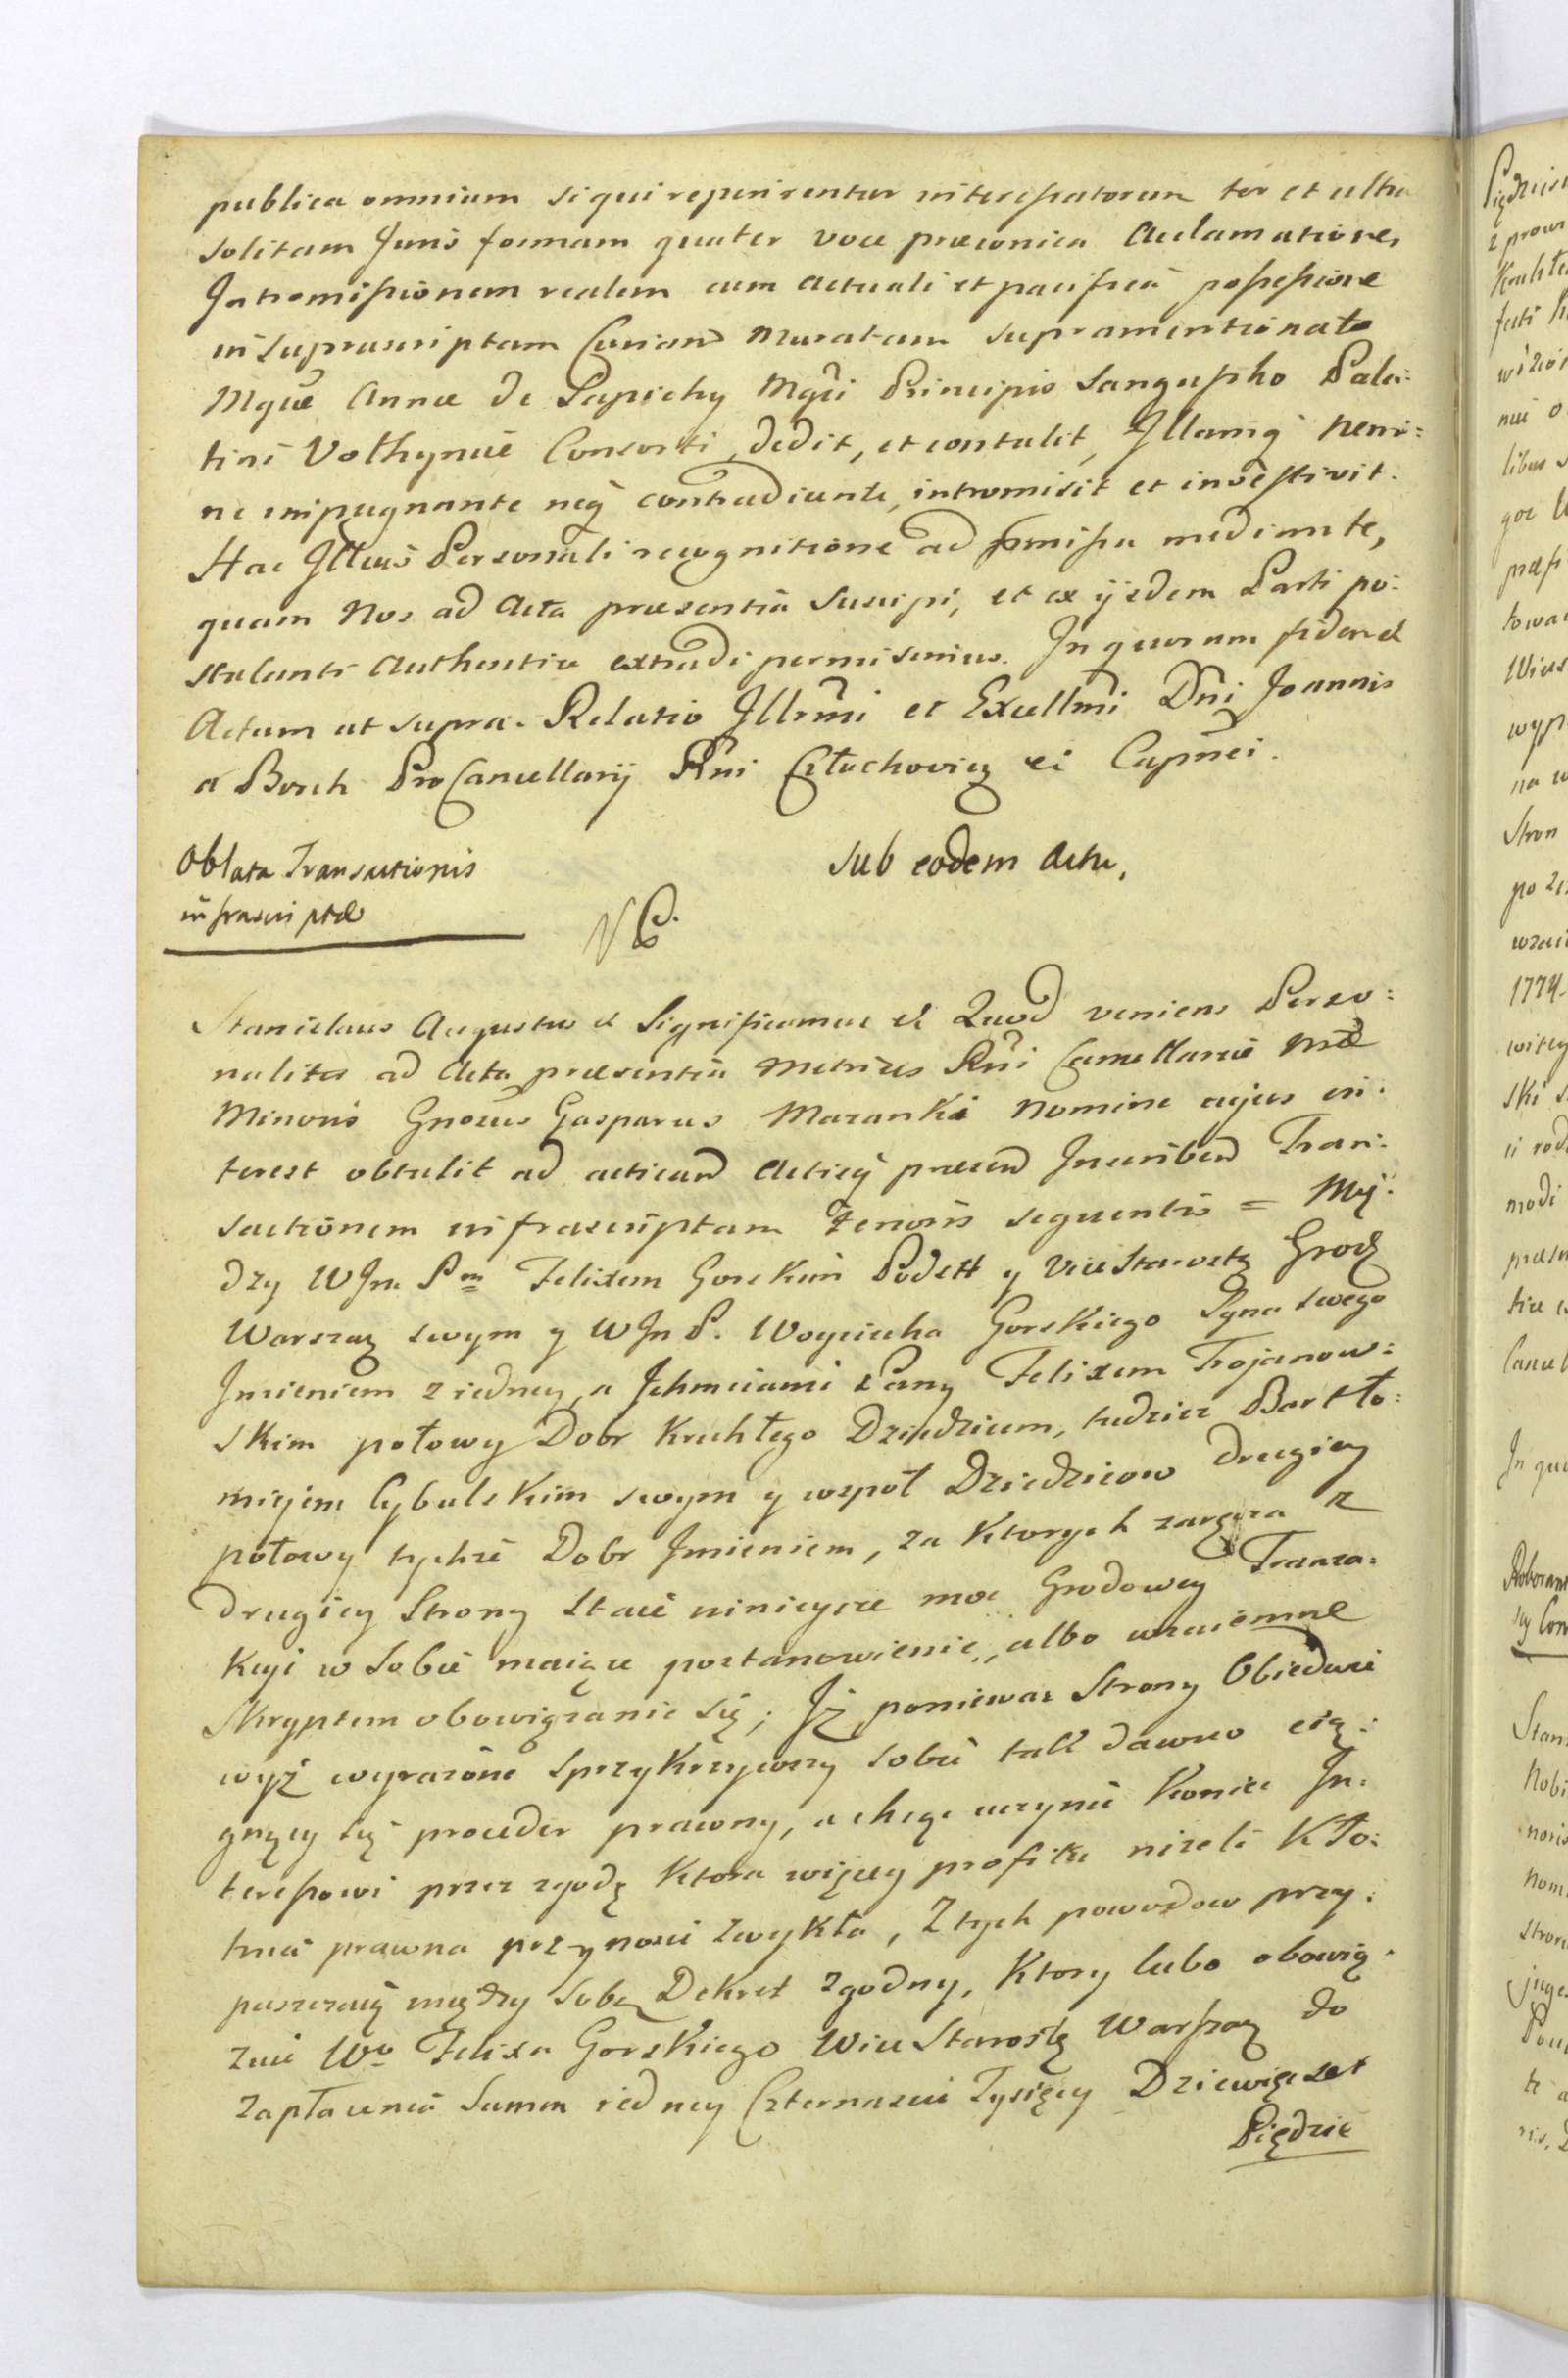 publica omnium siqui reperirentur interessatorum ter et ultra
solitam Juris formam quater voce præconica Aclamatione,
Intromissionem realem cum actuali et pacifica possessione
in suprascriptam Curiam Muratam supramentionatæ
Mgcæ Annæ de Sapiehy Mgci Principis Sangusko Pala:
tini Volhyniæ Consorti, dedit, et contulit, Illamq̃ Nemi:
ne impugnante neq̃ contradicente, intromisit et investivit.
Hac Illius Personali recognitione ad præmissa mediante,
quam Nos ad Acta præsentia suscipi, et ex ijsdem Parti po:
stulanti Authentice extradi permisimus. In quorum fidem et
Actum ut supra. Relatio Illrmi et Excellmi Dñi Joannis
a Borch ProCancellarij Rñi Człuchovieñ ei Capnei.
Oblata Transactionis
infrascriptæ
Sub eodem Actu,
Stanislaus Augustus et Significamus et Quod veniens Perso:
naliter ad Acta præsentia Metrices Rñi Cancellariæ Mræ
Minoris Gnosus Gasparus Maranki Nomine cujus in:
terest obtulit ad acticand Acticq̃ præsen Inscribend Tran:
sactionem infrascriptam tenoris sequentis = Mię:
dzy WJm Pm Felixem Gorskim Podstt y ViceStarostą Grodz
Warszaw swym y WJn P. Woyciecha Gorskiego Syna swego
Imieniem z iedney, a Ichmciami Pany Felixem Trojanow:
skim połowy Dobr Kruchłego Dziedzicem, tudzież Bartło:
mieiem Cybulskim swym y wspoł Dziedzicow drugiey
połowy tychże Dobr Imieniem, za ktorych zaręcza z
drugiey Strony Staie ninieysze moc Grodowey Tranza:
kcyi w Sobie maiące postanowienie, albo wzaiemne
Skryptem obowiązanie się; Iż ponieważ Strony Obiedwie
wyż wyrażone sprzykrzywszy sobie tak dawno cią:
gnący się proceder prawny, a chcąc uczynić Koniec In:
teressowi przez zgodę ktora więcey profitu niżeli Kło:
tnia prawna przynosić zwykła, Z tych powodow przy:
puszczaią między sobą Dekret zgodny, Ktory lubo obowią:
zuie Wo Felixa Gorskiego Wice Starostę Warszaw do
zapłacenia Summ iedney Czternaście Tysięcy Dziewięćset
Pięćdzie